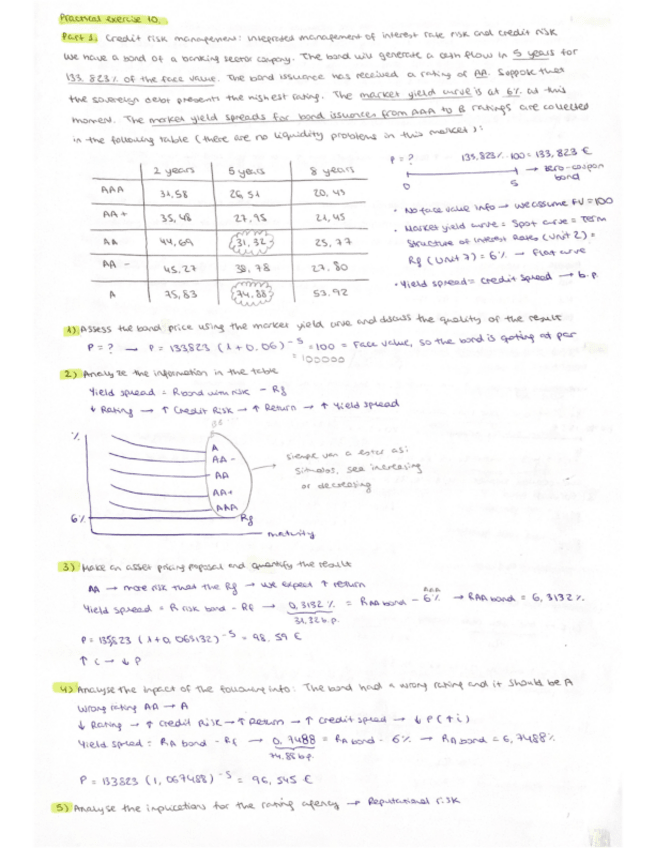 Practical exercise 10.
Part 1: Credit risk management: Integrated management of interest rate risk and credit risk
We have a bond of a banking sector company. The bond will generate a cash flow in 5 years for
133.823% of the face value. The bond issuance has received a rating of AA. Suppose that
the sovereign debt presents the highest rating. The market yield curve is at 6% at this
moment. The market yield spreads for bond issuances from AAA to B ratings are collected
in the following table (there are no liquidity problems in this market):
2 years 5 years 8 years
AAA 31,58 26,51 20,45
AA+ 35,48 27,95 21,45
AA 44,69 31,32 25,77
AA- 45,27 38,78 27,80
A 75,83 74,88 53,92
P = ? 133,823% · 100 = 133,823 €
0 5 → zero-coupon bond
• No face value info → we assume FV = 100
• Market yield curve = Spot curve = Term
Structure of Interest Rates (Unit 2) =
Rf (Unit 7) = 6% → Flat curve
• Yield spread = credit spread → b.p.
1) Assess the bond price using the market yield curve and discuss the quality of the result
P = ? → P = 133823 (1+0.06)⁻⁵ = 100 = Face value, so the bond is quoting at par
= 100000
2) Analyze the information in the table
Yield spread = R bond with risk - Rf
↓ Rating → ↑ Credit Risk → ↑ Return → ↑ Yield spread
%
A
AA -
AA
AA+
AAA
6% Rf
maturity
siempre van a estar así
sea increasing
or decreasing
3) Make an asset pricing proposal and quantify the result
AA → more risk that the Rf → we expect ↑ return
Yield spread = R risk bond - Rf → 0,3132% = R AA bond - 6% → R AA bond = 6,3132%
31,32 b.p.
P = 133823 (1+0,063132)⁻⁵ = 98.59 €
↑ i → ↓ P
4) Analyse the impact of the following info: The bond had a wrong rating and it should be A
Wrong rating AA → A
↓ Rating → ↑ Credit Risk → ↑ Return → ↑ Credit spread → ↓ P (↑ i)
Yield spread = RA bond - Rf → 0,7488 = RA bond - 6% → RA bond = 6,7488%
74,88 b.p.
P = 133823 (1,067488)⁻⁵ = 96,545 €
5) Analyse the implications for the rating agency → Reputational risk